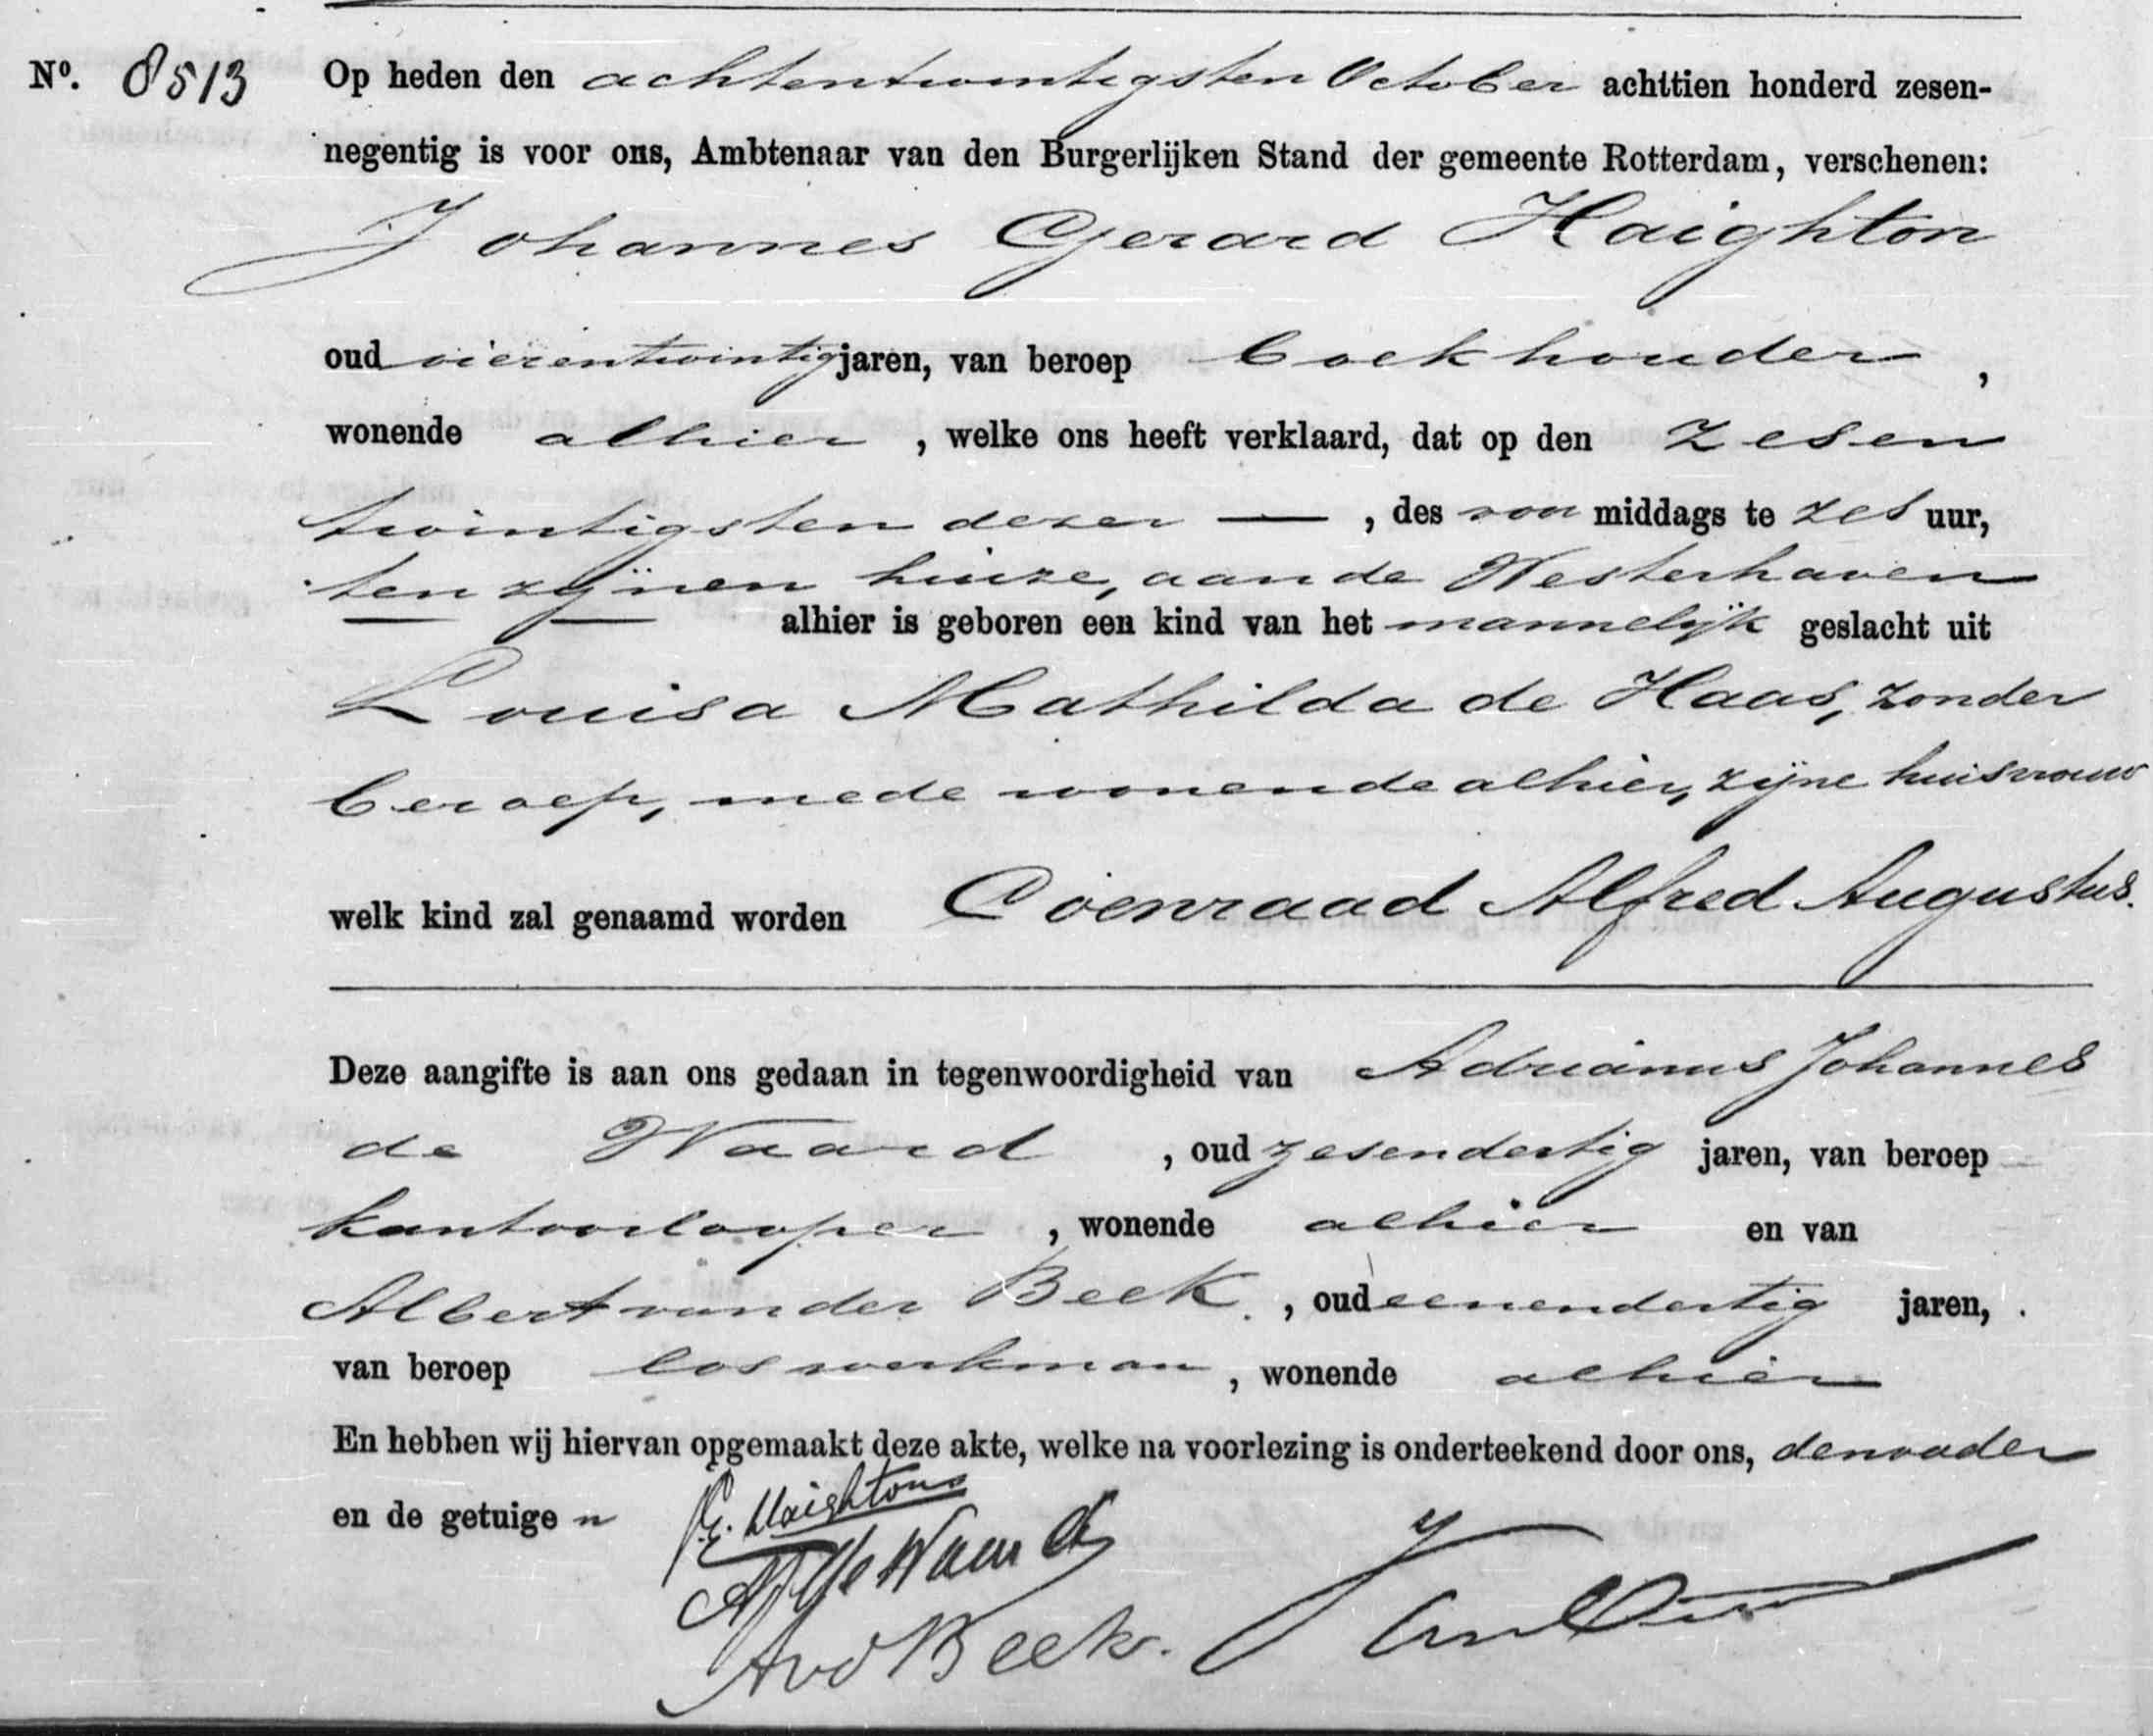 Nº. 8513 Op heden den achtentwintigsten October achttien honderd zesen-
negentig is voor ons, Ambtenaar van den Burgerlijken Stand der gemeente Rotterdam, verschenen:
Johannes Gerard Haighton
oud vierentwintig jaren, van beroep boekhouder,
wonende alhier, welke ons heeft verklaard, dat op den zesen
twintigsten dezer —, des voor middags te zes uur,
ten zijnen huize, aan de Westerhaven
alhier is geboren een kind van het mannelijk geslacht uit
Louisa Mathilda de Haas, zonder
beroep, mede wonende alhier, zijne huisvrouw
welk kind zal genaamd worden Coenraad Alfred Augustus.
Deze aangifte is aan ons gedaan in tegenwoordigheid van Adrianus Johannes
de Waard, oud zesendertig jaren, van beroep
kantoorlooper, wonende alhier en van
Albert van der Beek, oud eenendertig jaren,
van beroep los werkman, wonende alhier
En hebben wij hiervan opgemaakt deze akte, welke na voorlezing is onderteekend door ons, den vader
en de getuige n
J.G. Haighton
AJ de Waard
AvdBeek.